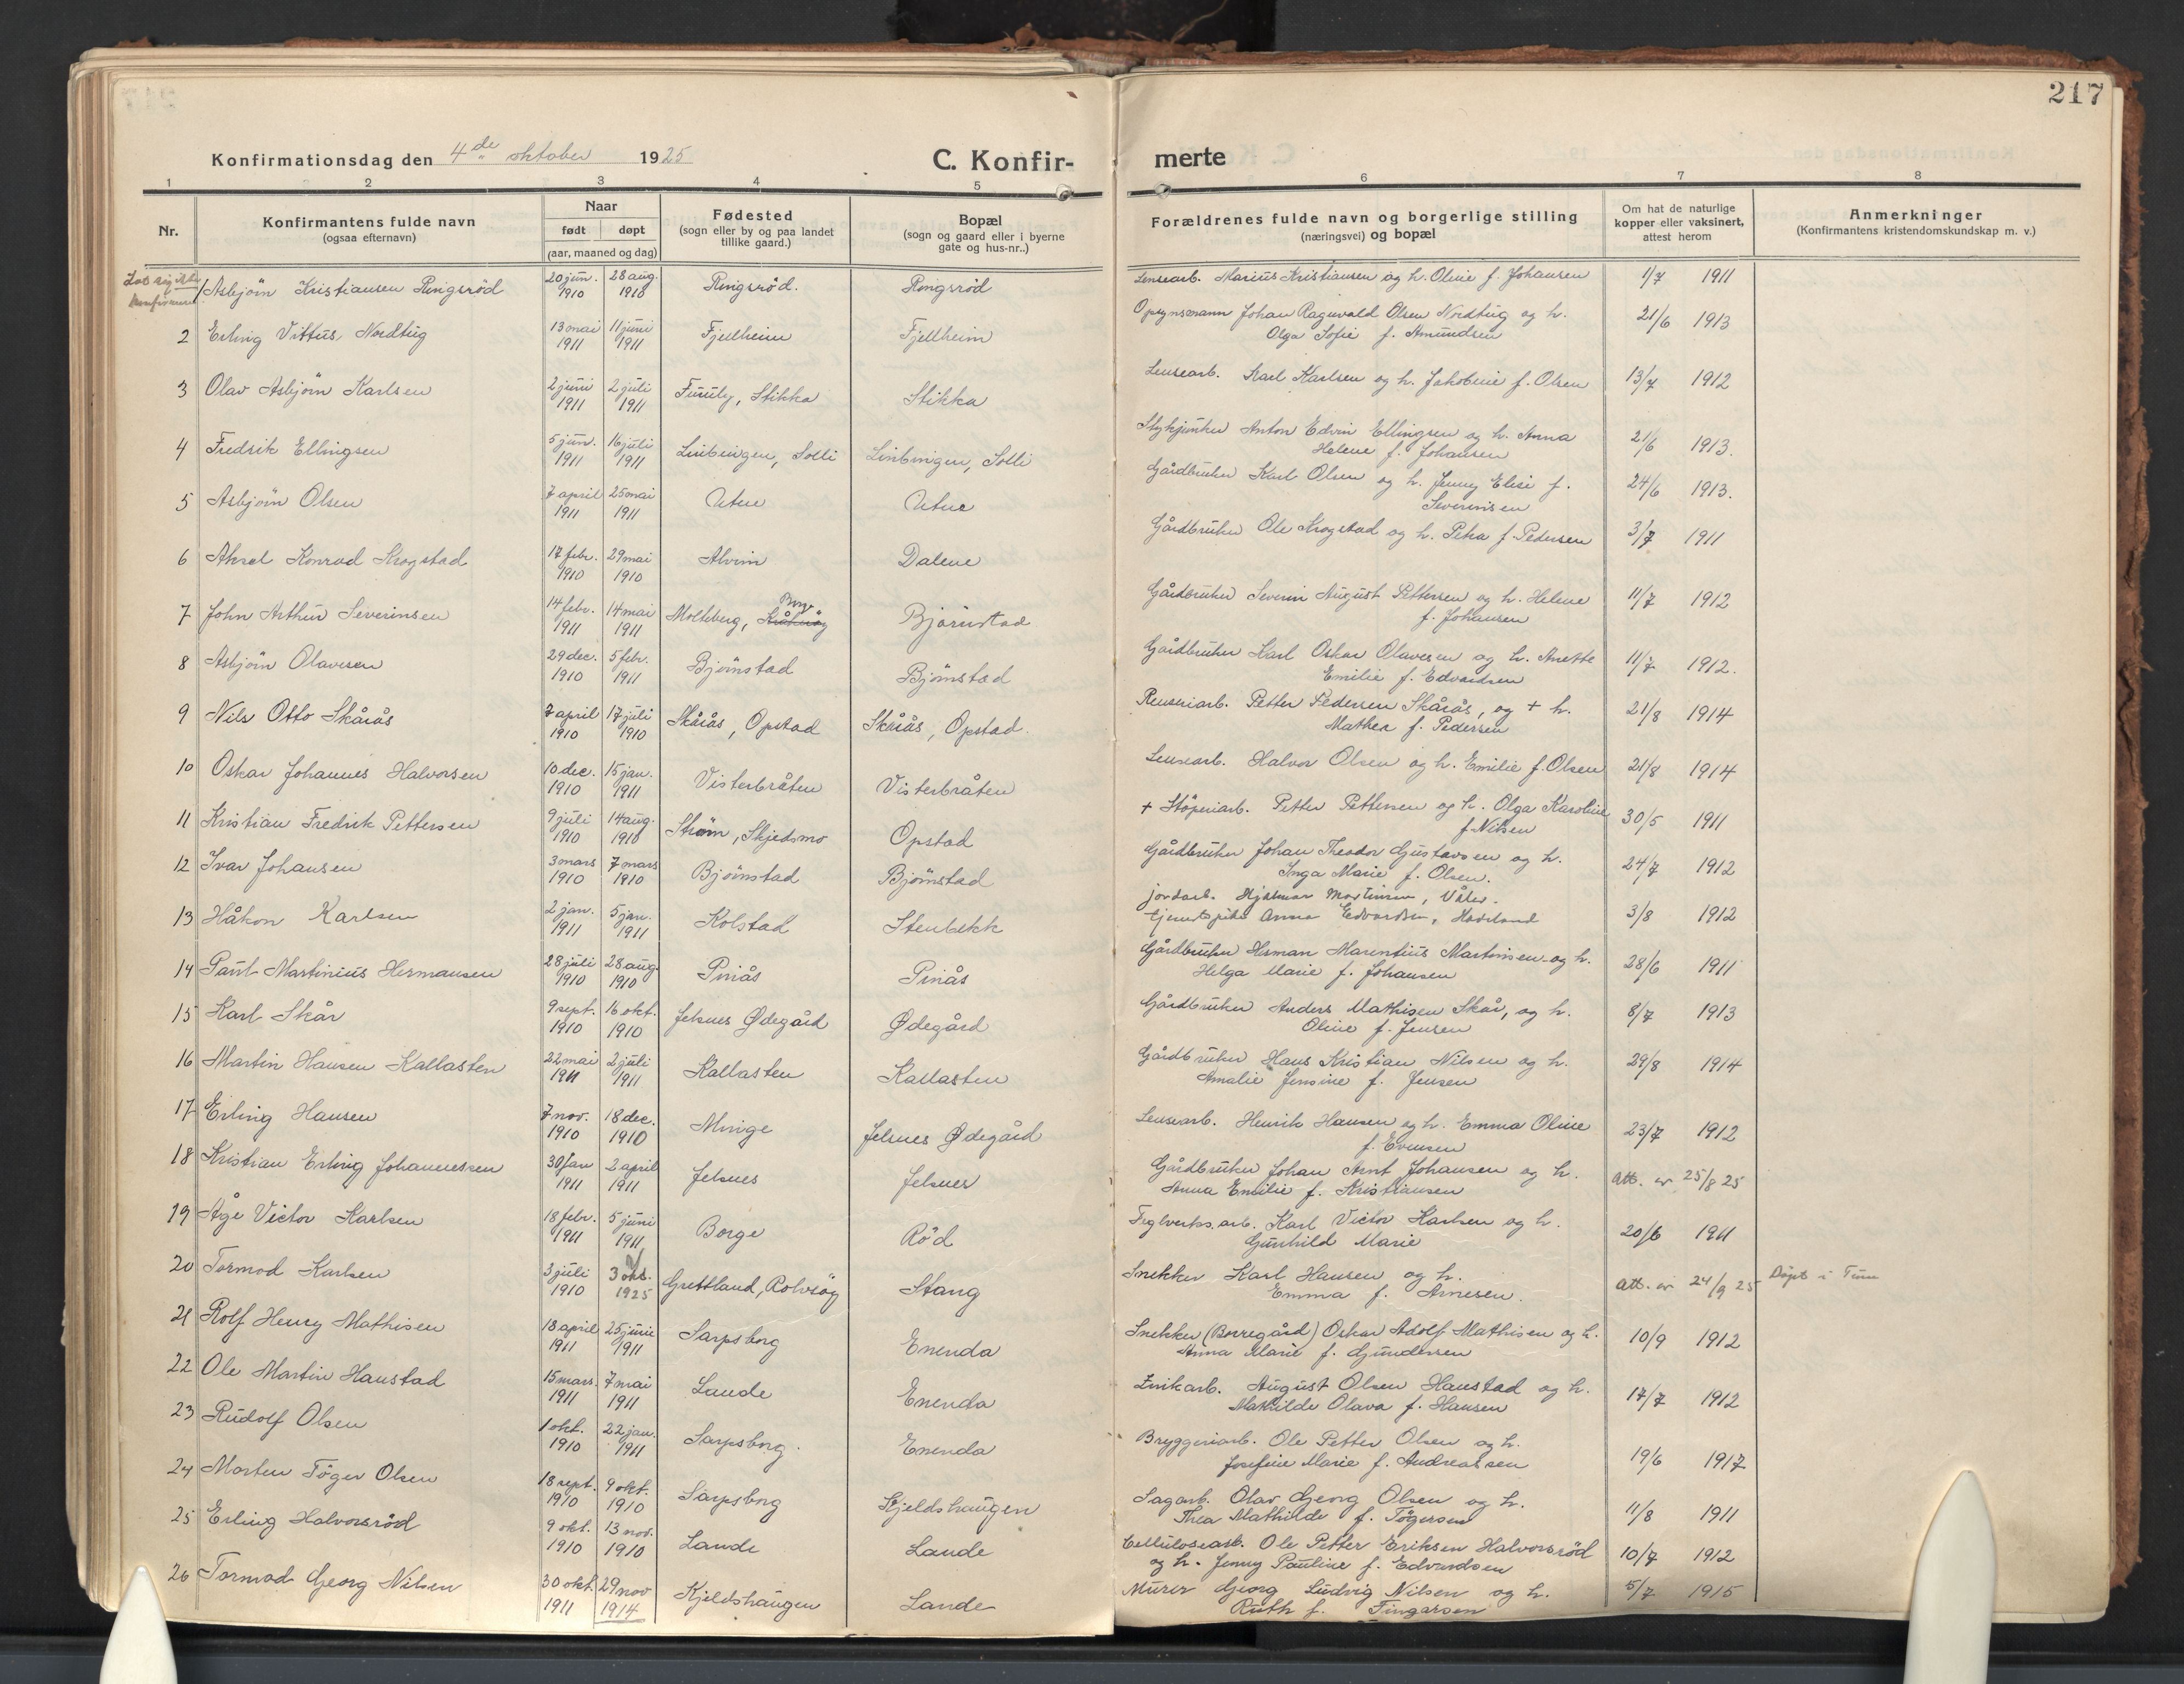 217
Konfirmationsdag den 4de oktober 1925
C. Konfir-
merte
1 2 3 4 5 6 7 8
Nr.
Konfirmantens fulde navn
(ogsaa efternavn)
Naar
født døpt
(aar, maaned og dag)
Fødested
(sogn eller by og paa landet
tillike gaard.)
Bopæl
(sogn og gaard eller i byerne
gate og hus-nr..)
Forældrenes fulde navn og borgerlige stilling
(næringsvei) og bopæl
Om hat de naturlige
kopper eller vaksinert,
attest herom
Anmerkninger
(Konfirmantens kristendomskundskap m. v.)
Lod sig ikke
konfirmere
1 Asbjörn Kristiansen Ringsröd 20 jun. 1910 28 aug. 1910 Ringsröd. Ringsröd Lensearb. Marius Kristiansen og h. Oline f. Johansen 1/7 1911
2 Erling Vittus Nordtug 13 mai 1911 11 juni 1911 Fjellheim Fjellheim Opsynsmann Johan Ragnvald Olsen Nordtug og h.
Olga Sofie f. Amundsen 21/6 1913
3 Olav Asbjörn Karlsen 2 juni 1911 2 juli 1911 Stikka Stikka Lensearb. Karl Karlsen og h. Jakobine f. Olsen 13/7 1912
4 Fredrik Ellingsen 5 jun. 1911 16 juli 1911 Solli Solli Anton Edvin Ellingsen og h. Anna
Helene f. Johansen 21/6 1913.
5 Asbjörn Olsen 7 april 1911 25 mai 1911 Utne Utne Gårdbruker Karl Olsen og h. Jenny Elise f.
Severinsen 24/6 1913.
6 Aksel Konrad Skogstad 17 febr. 1910 29 mai 1910 Alvim Dalene Gårdbruker Ole Skogstad og h. Petra f. Pedersen 3/7 1911
7 John Arthur Severinsen 14 febr. 1911 14 mai 1911 Molteberg, Borge Bjørnstad Gårdbruker Severin August Pettersen og h. Helene
f. Johansen 11/7 1912
8 Asbjörn Olavesen 29 dec. 1910 5 febr. 1911 Bjørnstad Bjørnstad Gårdbruker Karl Oskar Olavesen og h. Anette
Emilie f. Edvardsen 11/7 1912.
9 Nils Otto Skårås 7 april 1910 17 juli 1910 Skårås, Opstad Skårås, Opstad. Renseriarb. Petter Pedersen Skårås, og + h.
Mathea f. Pedersen 21/8 1914
10 Oskar Johannes Halvorsen 10 dec. 1910 15 jan. 1911 Visterbråten Visterbråten Lensearb. Halvor Olsen og h. Emilie f. Olsen 21/8 1914
11 Kristian Fredrik Pettersen 9 juli 1910 14 aug. 1910 Strøm, Skjedsmo Opstad + Støperiarb. Petter Pettersen og h. Olga Karoline
f. Nilsen 30/5 1911
12 Ivar Johansen 3 mars 1910 7 mars 1910 Bjørnstad Bjørnstad Gårdbruker Johan Theodor Gustavsen og h.
Inga Marie f. Olsen. 24/7 1912
13 Håkon Karlsen 2 jan. 1911 5 jan. 1911 Kolstad Stenbekk jordarb. Hjalmar Martinsen, Våler.
tjenestepike Anna Edvardsen, Haveland 3/8 1912
14 Paul Martinius Hermansen 28 juli 1910 28 aug. 1910 Pinås Pinås Gårdbruker Herman Marentius Martinsen og h.
Helga Marie f. Johansen 28/6 1911
15 Karl Skår 9 sept. 1910 16 okt. 1910 Jelsnes Ødegård Ødegård Gårdbruker Anders Mathisen Skår, og h.
Oline f. Jensen 8/7 1913
16 Martin Hansen Kallasten 22 mai 1911 2 juli 1911 Kallasten Kallasten Gårdbruker Hans Kristian Nilsen og h.
Amalie Jensine f. Jensen 29/8 1914
17 Erling Hansen 7 nov. 1910 18 dec. 1910 Minge Jelsnes Ødegård Lensearb. Henrik Hansen og h. Emma Oline
f. Evensen 23/7 1912
18 Kristian Erling Johannessen 30 jan 1911 2 april 1911 Jelsnes Jelsnes Gårdbruker Johan Arnt Johansen og h.
Anna Emilie f. Kristiansen att. av 25/8 25
19 Åge Victor Karlsen 18 febr. 1911 5 juni 1911 Borge Röd Teglverks.arb. Karl Victor Karlsen og h.
Gunhild Marie 20/6 1911
20 Tormod Karlsen 3 juli 1910 3 okt. 1925 Grettland, Rolvsøy Stang Snekker Karl Hansen og h.
Emma f. Arnesen. att. av 24/9 25 Døpt i Tune
21 Rolf Henry Mathisen 18 april 1911 25 juni 1911 Sarpsborg Enenda Snekker (Borregård) Oskar Adolf Mathisen og h.
Anna Marie f. Gundersen 10/9 1912
22 Ole Martin Haustad 15 mars. 1911 7 mai 1911 Lande Enenda Zinkarb. August Olsen Haustad og h.
Mathilde Olava f. Hansen 17/7 1912
23 Rudolf Olsen 1 okt. 1910 22 jan. 1911 Sarpsborg. Enenda Bryggeriarb. Ole Petter Olsen og h.
Josefine Marie f. Andreassen 19/6 1917
24 Morten Töger Olsen 18 sept. 1910 9 okt. 1910 Sarpsborg Kjeldshaugen Sagarb. Olav Georg Olsen og h.
Thea Mathilde f. Tögersen 11/8 1911
25 Erling Halvorsröd 9 okt. 1910 13 nov. 1910 Lande Lande Cellulosearb. Ole Petter Eriksen Halvorsröd
og h. Jenny Pauline f. Edvardsen 10/7 1912
26 Tormod Georg Nilsen 30 okt. 1911 29 nov 1914 Kjeldshaugen Lande Murer Georg Ludvig Nilsen og h.
Ruth f. Fingarsen 5/7 1915